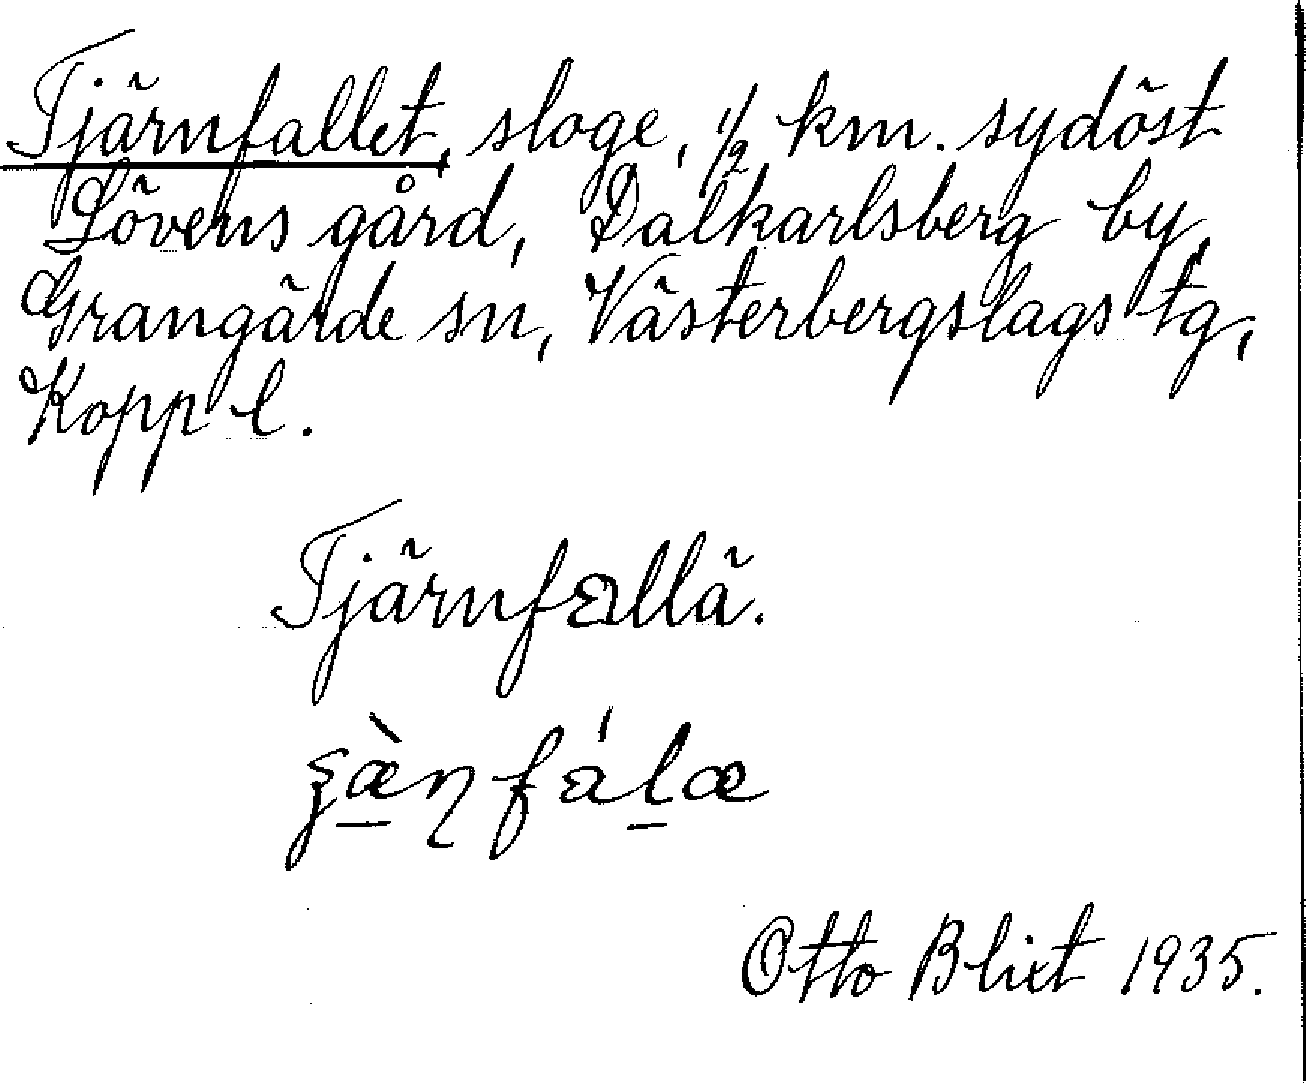 Tjärnfallet, sloge, ½ km. sydöst
Lövens gård, Dalkarlsberg by,
Grangärde sn, Västerbergslags tg,
Kopp l.
Tjärnfallä.
Otto Blixt 1935.